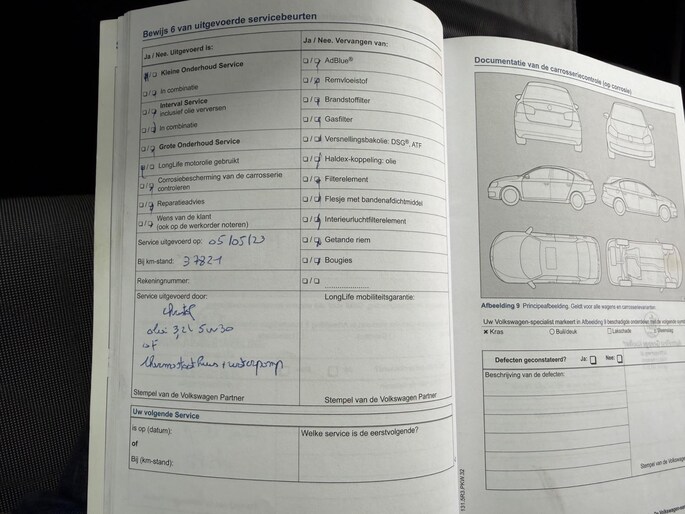 Bewijs 6 van uitgevoerde servicebeurten
Ja / Nee. Uitgevoerd is:
Kleine Onderhoud Service
In combinatie
Interval Service
inclusief olie verversen
In combinatie
Grote Onderhoud Service
LongLife motorolie gebruikt
Corrosiebescherming van de carrosserie
controleren
Reparatieadvies
Wens van de klant
(ook op de werkorder noteren)
Service uitgevoerd op: 05/05/23
Bij km-stand: 37821
Rekeningnummer:
Service uitgevoerd door:
olie 3,2L 5W30
thermostaathuis + waterpomp
Stempel van de Volkswagen Partner
Ja / Nee. Vervangen van:
AdBlue®
Remvloeistof
Brandstoffilter
Gasfilter
Versnellingsbakolie: DSG®, ATF
Haldex-koppeling: olie
Filterelement
Flesje met bandenafdichtmiddel
Interieurluchtfilterelement
Getande riem
Bougies
LongLife mobiliteitsgarantie:
Stempel van de Volkswagen Partner
Uw volgende Service
is op (datum):
of
Bij (km-stand):
Welke service is de eerstvolgende?
131.5R3.PKW.32
Documentatie van de carrosseriecontrole (op corrosie)
Afbeelding 9 Principeafbeelding. Geldt voor alle wagens en carrosserievarianten.
Uw Volkswagen-specialist markeert in Afbeelding 9 beschadigde onderdelen met de volgende
Kras
Buil/deuk
Lakschade
Steenslag
Defecten geconstateerd? Ja: Nee:
Beschrijving van de defecten:
Stempel van de Volkswagen